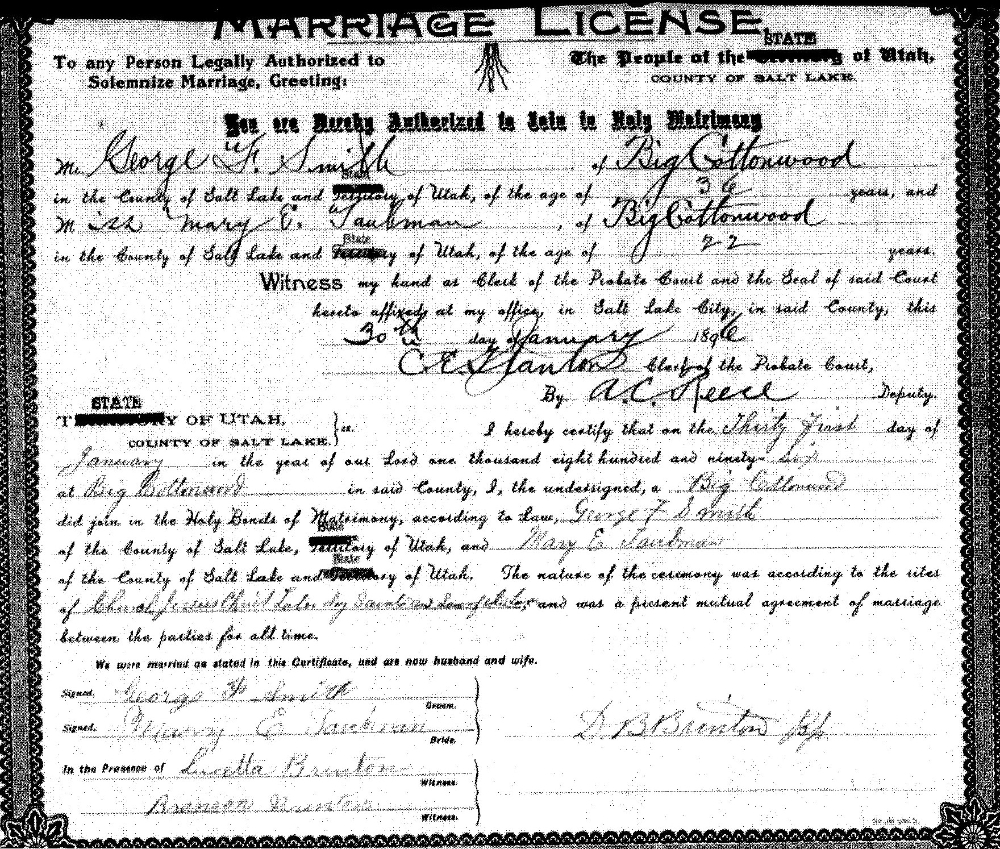 MARRIAGE LICENSE
To any Person Legally Authorized to Solemnize Marriage, Greeting:
STATE
The People of the Territory of Utah,
COUNTY OF SALT LAKE.
You are Hereby Authorized to Join in Holy Matrimony
Mr. George F. Smith of Big Cottonwood
State
in the County of Salt Lake and Territory of Utah, of the age of 36 years, and
Miss Mary E. Taubman, of Big Cottonwood
State
in the County of Salt Lake and Territory of Utah, of the age of 22 years.
Witness my hand as Clerk of the Probate Court and the Seal of said Court
hereto affixed, at my office, in Salt Lake City, in said County, this
30th day of January 1896
C. E. Stanton Clerk of the Probate Court,
By A. C. Reese Deputy.
STATE
TERRITORY OF UTAH,
COUNTY OF SALT LAKE. } ss.
I hereby certify that on the Thirty First day of
January in the year of our Lord one thousand eight hundred and ninety- six
at Big Cottonwood in said County, I, the undersigned, a Big Cottonwood
did join in the Holy Bonds of Matrimony, according to Law, George F Smith
State
of the County of Salt Lake, Territory of Utah, and Mary E Taubman
State
of the County of Salt Lake and Territory of Utah. The nature of the ceremony was according to the rites
of Jesus Christ Latter day Saints and was a present mutual agreement of marriage
between the parties for all time.
We were married as stated in this Certificate, and are now husband and wife.
Signed, George F Smith Groom.
Signed, Mary E Taubman Bride.
D. B. Brinton
In the Presence of Lucetta Brinton Witness.
Brinton Witness.